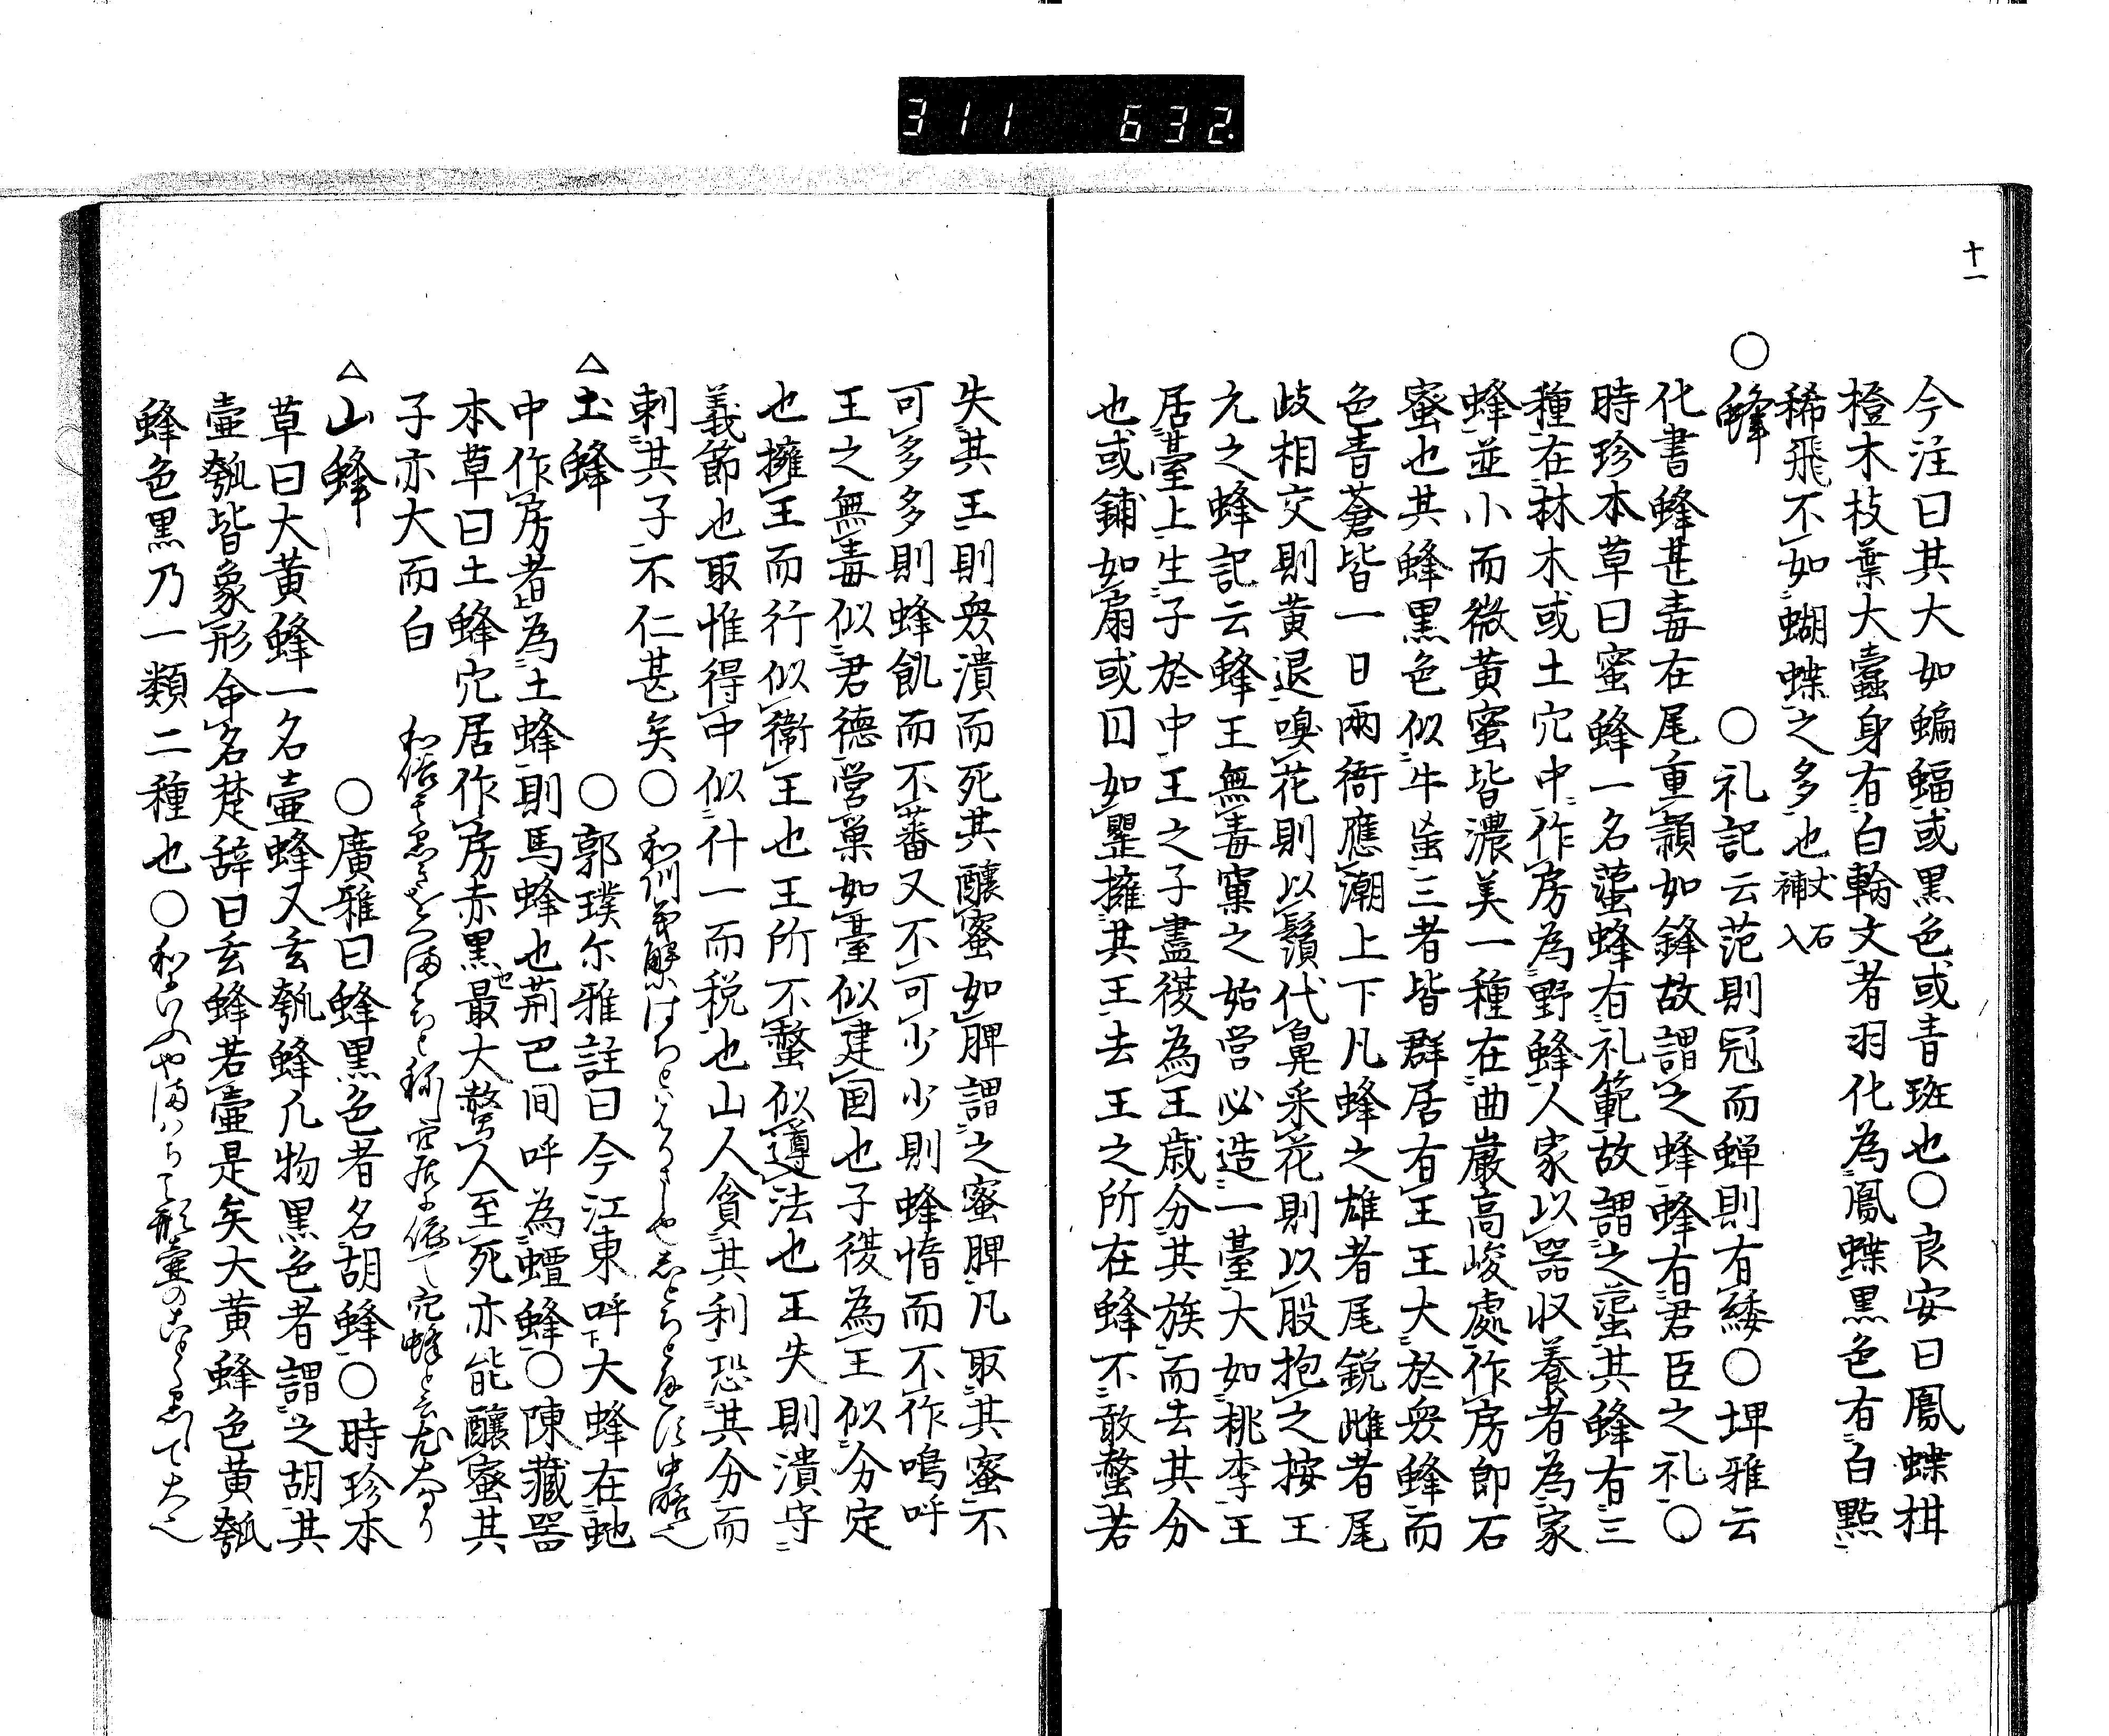 311 632.
十一
今注曰其大如蝙蝠或黒色或青班也〇良安曰鳳蝶柑
橙木枝葉大蠧身有白輪文者羽化為鳳蝶黒色有白點
稀飛不如蝴蝶之多也
〇蜂 〇礼記云范則冠而蝉則有緌〇埤雅云
化書蜂甚毒在尾重頴如鋒故謂之蜂蜂有君臣之礼〇
時珍本草曰蜜蜂一名蠟蜂有礼範故謂之蠆其蜂有三
種在林木或土穴中作房為野蜂人家以器収養者為家
蜂並小而微黄蜜皆濃美一種在曲巖高峻處作房即石
蜜也其蜂黒色似牛䖟三者皆群居有王王大於衆蜂而
色青蒼皆一日兩衙應潮上下凡蜂之雄者尾鋭雌者尾
歧相交則黄退嗅花則以鬚代鼻采花則以股抱之按王
元之蜂記云蜂王無毒窠之始営必造一臺大如桃李王
居臺上生子於中王之子盡復為王歳分其族而去其分
也或鋪如扇或囙如罌擁其王去王之所在蜂不敢螫若
失其王則衆潰而死其醸蜜如脾謂之蜜脾凡取其蜜不
可多多則蜂飢而不蕃又不可少少則蜂惰而不作嗚呼
王之無毒似君德営巣如臺似建国也子復為王似分定
也擁王而行似衛王也王所不螫似遵法也王失則潰守
義節也取惟得中似什一而税也山人貪其利恐其分而
刺其子不仁甚矣〇
△土蜂 〇郭璞尓雅註曰今江東呼大蜂在地
中作房者為土蜂則馬蜂也荊巴间呼為蟺蜂〇陳藏器
本草曰土蜂穴居作房赤黒也最大螫人至死亦能醸蜜其
子亦大而白
△山蜂 〇廣雅曰蜂黒色者名胡蜂〇時珍本
草曰大黄蜂一名壷蜂又玄瓠蜂凡物黒色者謂之胡其
壷瓠皆象形命名楚辞曰玄蜂若壷是矣大黄蜂色黄瓠
蜂色黒乃一類二種也〇